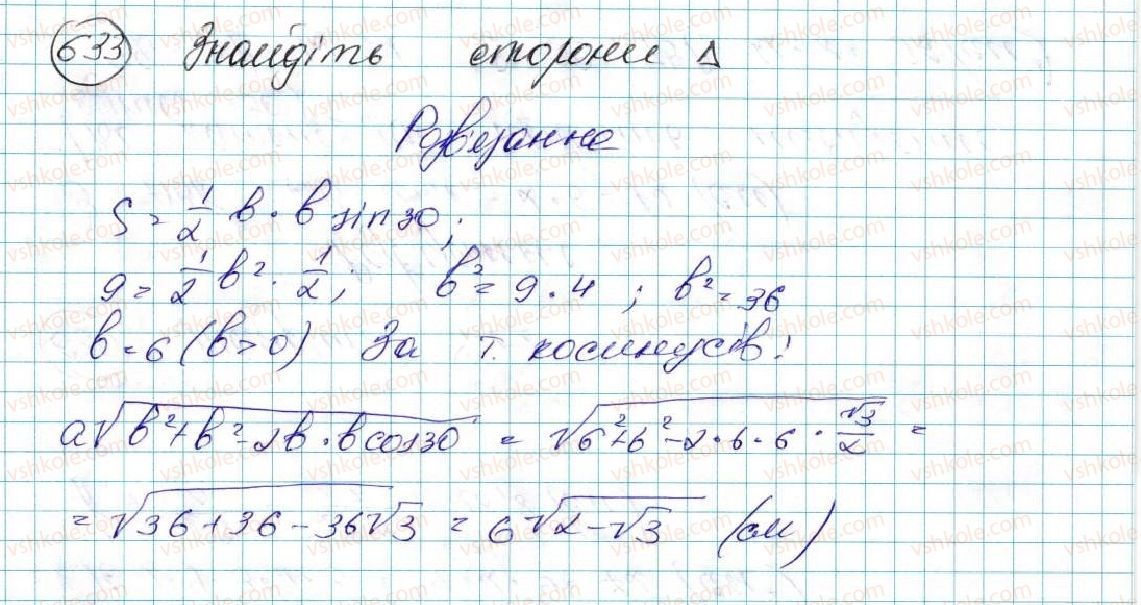 633 Знайдіть сторони Δ
Розв'язання
S = 1/2 b · b sin 30;
9 = 1/2 b² · 1/2; b² = 9 · 4; b² = 36
b = 6 (b > 0) За т. косинусів:
a √(b² + b² - 2b · b cos 30) = √(6² + 6² - 2 · 6 · 6 · √3/2) =
= √(36 + 36 - 36√3) = 6√(2 - √3) (см)
vshkole.com